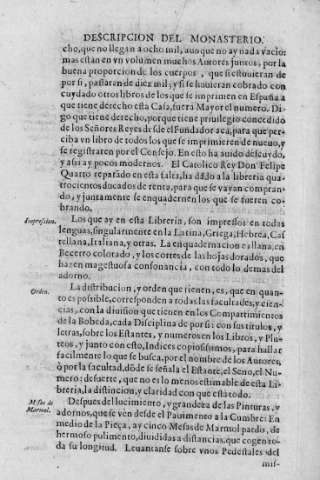 DESCRIPCION DEL MONASTERIO.
cho, que no llegan a ocho mil, aunque no ay nada vacio:
mas estan en vn volumen muchos Autores juntos, por la
buena proporcion de los cuerpos, que si estuuieran de
por si, passaran de diez mil; y si se huuieran cobrado con
cuydado otros libros de los que se imprimen en España a
que tiene derecho esta Casa, fuera Mayor el numero. Di-
go que tiene derecho, porque tiene priuilegio concedido
de los Señores Reyes desde el Fundador acà, para que per-
ciba vn libro de todos los que se imprimieren de nueuo, y
se registraren por el Consejo. En esto ha auido descuydo,
y assi ay pocos modernos. El Catolico Rey Don Felipe
Quarto reparado en esta falta, ha dado a la libreria qua-
trocientos ducados de renta, para que se vayan compran-
do, y juntamente se enquadernen los que se fueren co-
brando.
Impression.
Los que ay en esta Libreria, son impressos en todas
lenguas, singularmente en la Latina, Griega, Hebrea, Cas-
tellana, Italiana, y otras. La enquadernacion es llana, en
Becerro colorado, y los cortes de las hojas dorados, que
hazen magestuosa consonancia, con todo lo demas del
adorno.
Orden.
La distribucion, y orden que tienen, es, que en quan-
to es possible, corresponden a todas las facultades, y cien-
cias, con la diuision que tienen en los Compartimientos
de la Bobeda, cada Disciplina de por si: con sus titulos, y
letras, sobre los Estantes, y numeros en los Libros, y Plu-
teos, y junto con esto, Indices copiosissimos, para hallar
facilmente lo que se busca, por el nombre de los Autores,
ò por la facultad, dõde se señala el Estante, el Seno, el Nu-
mero: de suerte, que no es lo menos estimable de esta Li-
breria, la distincion, y claridad con que està todo.
Mesas de
Marmol.
Despues del lucimiento, y grandeza de las Pinturas, y
adornos, que se vèn desde el Pauimento a la Cumbre: En
medio de la Pieça, ay cinco Mesas de Marmol pardo, de
hermoso pulimento, diuididas a distancias, que cogen to-
da su longitud. Leuantanse sobre vnos Pedestales del
mis-